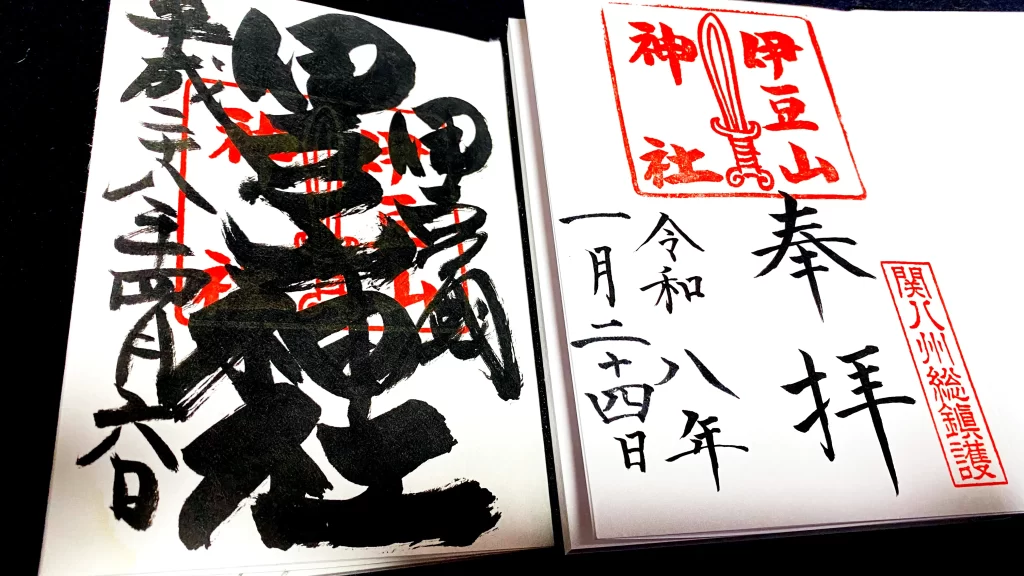 関八州総鎮護
伊豆山
神社
奉拝
令和八年
一月二十四日
伊豆國
伊豆山神社
平成二十八年四月六日
伊豆山
神社